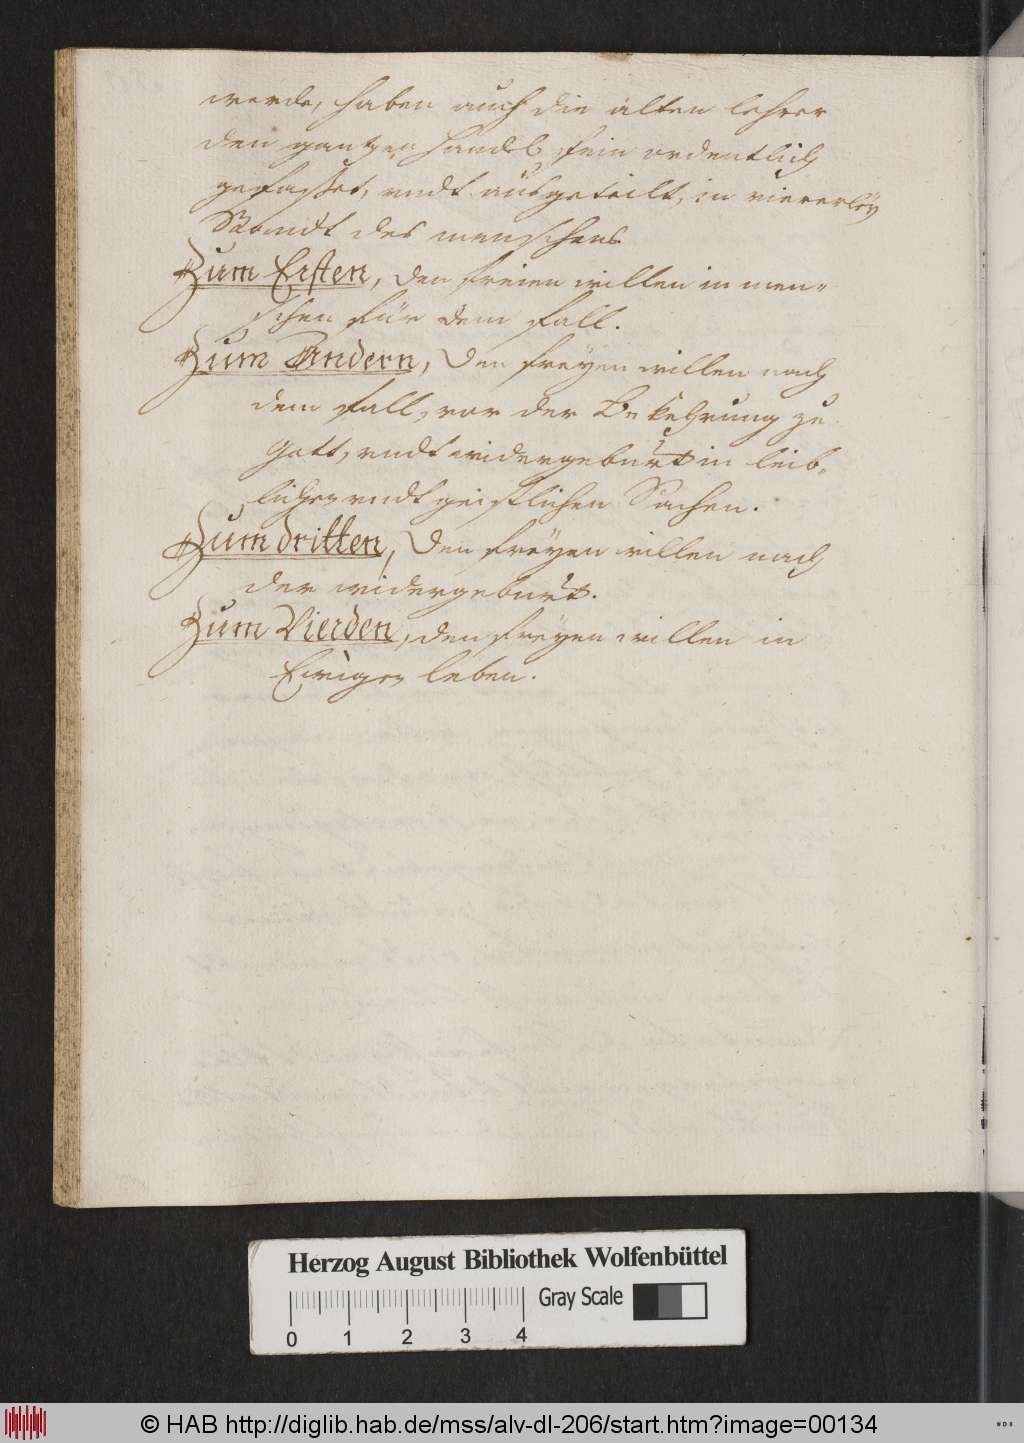 werde, haben auch die alten lehrer
den gantzen handel fein ordentlich
gefasset, undt ausgeteilt, in viererley
Standt des menschens
Zum Ersten, den freien willen in men-
schen für dem fall.
Zum Andern, den freyen willen nach
dem fall, vor der Bekehrung zu
Gott, undt widergeburt in leib-
lichen undt geistlichen Sachen.
Zum dritten, den freyen willen nach
der widergeburt.
Zum Vierden, den freyen willen in
Ewigen leben.
Herzog August Bibliothek Wolfenbüttel
Gray Scale
0 1 2 3 4
© HAB http://diglib.hab.de/mss/alv-dl-206/start.htm?image=00134